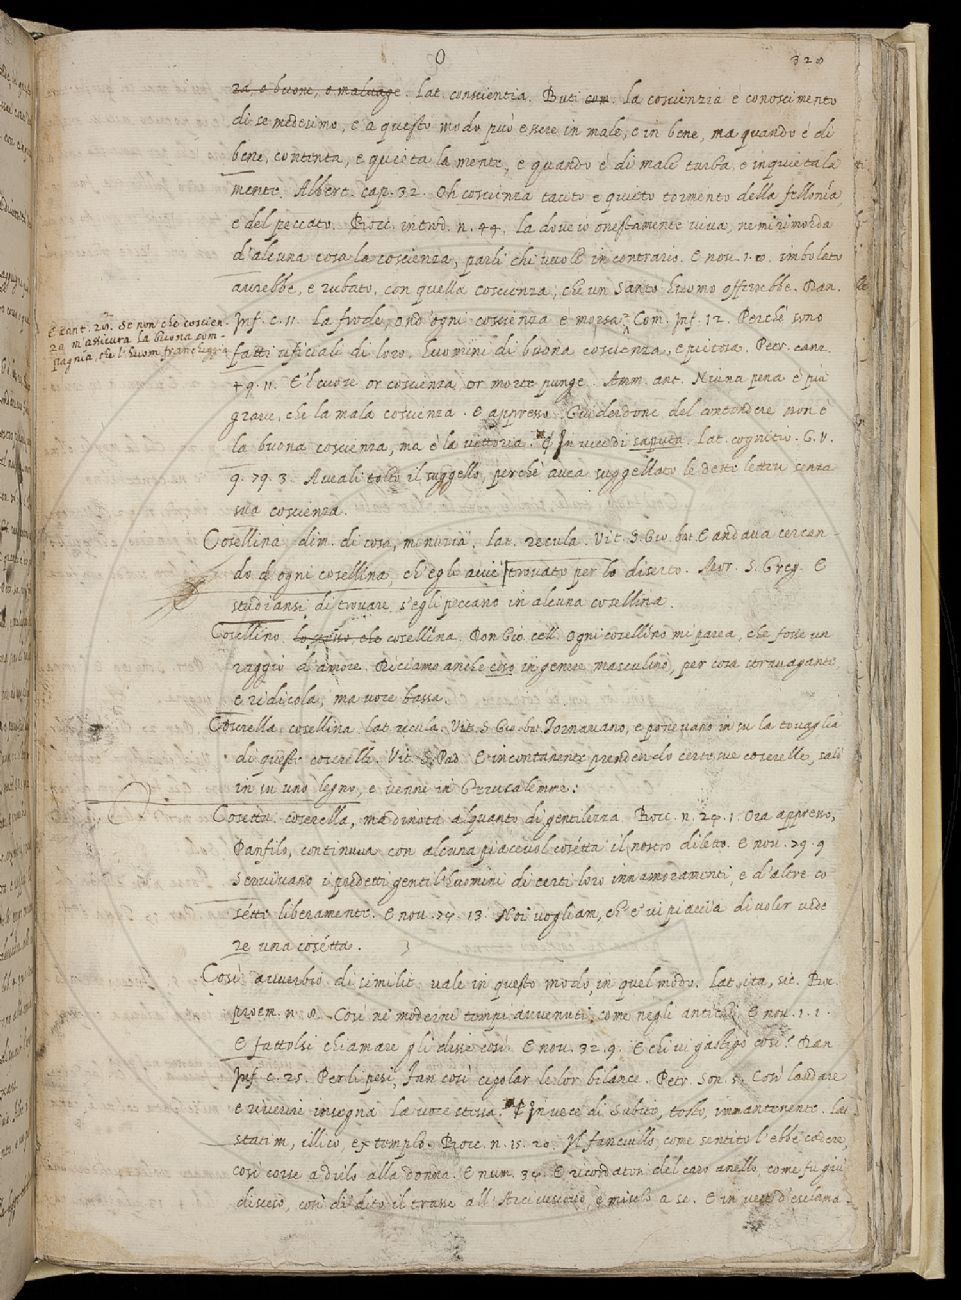 O
320
za o buone, o malvage. lat. conscientia. Buti com. la coscienzia e conoscimento
di se medesimo, e a questo modo può essere in male, e in bene, ma quando è di
bene, contenta, e quieta la mente, e quando è di male turba, e inquieta la
mente. Albert. cap. 32. Oh coscienza tacito e quieto tormento della fellonia,
e del peccato. Bocc. introd. n. 44. la dove io onestamente viva, ne mi rimorda
d'alcuna cosa la coscienza, parli chi vuole in contrario. E nov. 1. 10. imbolato
avrebbe, e rubato, con quella coscienza, che un Santo huomo offerrebbe. Dan.
Inf. c. 11. la frode, ond'ogni coscienza e morsa. Com. Inf. 12. Perche sono
E cant. 28. Se non che coscien-
za m'assicura la buona com-
pagnia, che l'huom francheggia
fatti uficiali di loro, huomini di buona coscienza, e pietosa. Petr. canz.
49. 11. E'l cuore or coscienza or morte punge. Amm. ant. Niuna pena e più
grave, che la mala coscienza. E appresso. Guiderdone del contendere non è
la buona coscienza, ma è la vittoria. In vece di saputa. lat. cognitio. G. V.
9. 79. 3. A quali tolto il suggello, perchè avea suggellato le dette lettere senza
sua coscienza.
Cosellina dim. di cosa, minuzia. lat. recula. Vit. S. Gio. bat. E andava cercan-
do d'ogni cosellina, ch'egli avie trovato per lo diserto. Mor. S. Greg. E
studiansi di trovare, s'egli peccano in alcuna cosellina.
Cosellino lo stesso, che cosellina. Don Gio. cell. Ogni cosellino mi parea, che fosse un
raggio d'amore. Diciamo anche coso in genere masculino, per cosa stravagante,
e ridicola, ma voce bassa.
Coserella cosellina. lat. recula. Vit. S. Gio. bat. Tornavano, e ponevano in su la tovaglia
di queste coserelle. Vit. S. Pad. E incontanente prendendo certe sue coserelle, salì
in su uno legno, e venne in Gerusalemme.
Cosetta. coserella, ma dinota alquanto di gentilezza. Bocc. n. 24. 1. Ora appresso,
Panfilo, continuua con alcuna piacevol cosetta il nostro diletto. E nov. 79. 9
Servivano i predetti gentil'huomini di certi loro innamoramenti, e d'altre co
sette liberamente. E nov. 79. 13. Noi vogliam, ch'e' vi piaccia di voler vede
re una cosetta.
Così avverbio di similit. vale in questo modo, in quel modo. lat. ita, sic. Bocc.
proem. n. 8. Così ne' moderni tempi avvenuti, come negli antichi. E nov. 1. 1.
E fattolsi chiamare gli disse così. E nov. 32. 9. E chi vi gastigò così? Dan.
Inf. c. 25. Per li pesi, fan così cigolar le lor bilance. Petr. Son. 5. Così laudare
e riverire insegna la voce stessa. In vece di Subito, tosto, immantenente. lat.
statim, illico, ex templo. Bocc. n. 15. 20. Il fanciullo come sentito l'ebbe cadere,
così corse a dirlo alla donna. E num. 34. E ricordatosi del caro anello, come fu giù
disceso, così di dito il trasse all'Arcivescovo, e miselo a se. E in vece d'esclama-